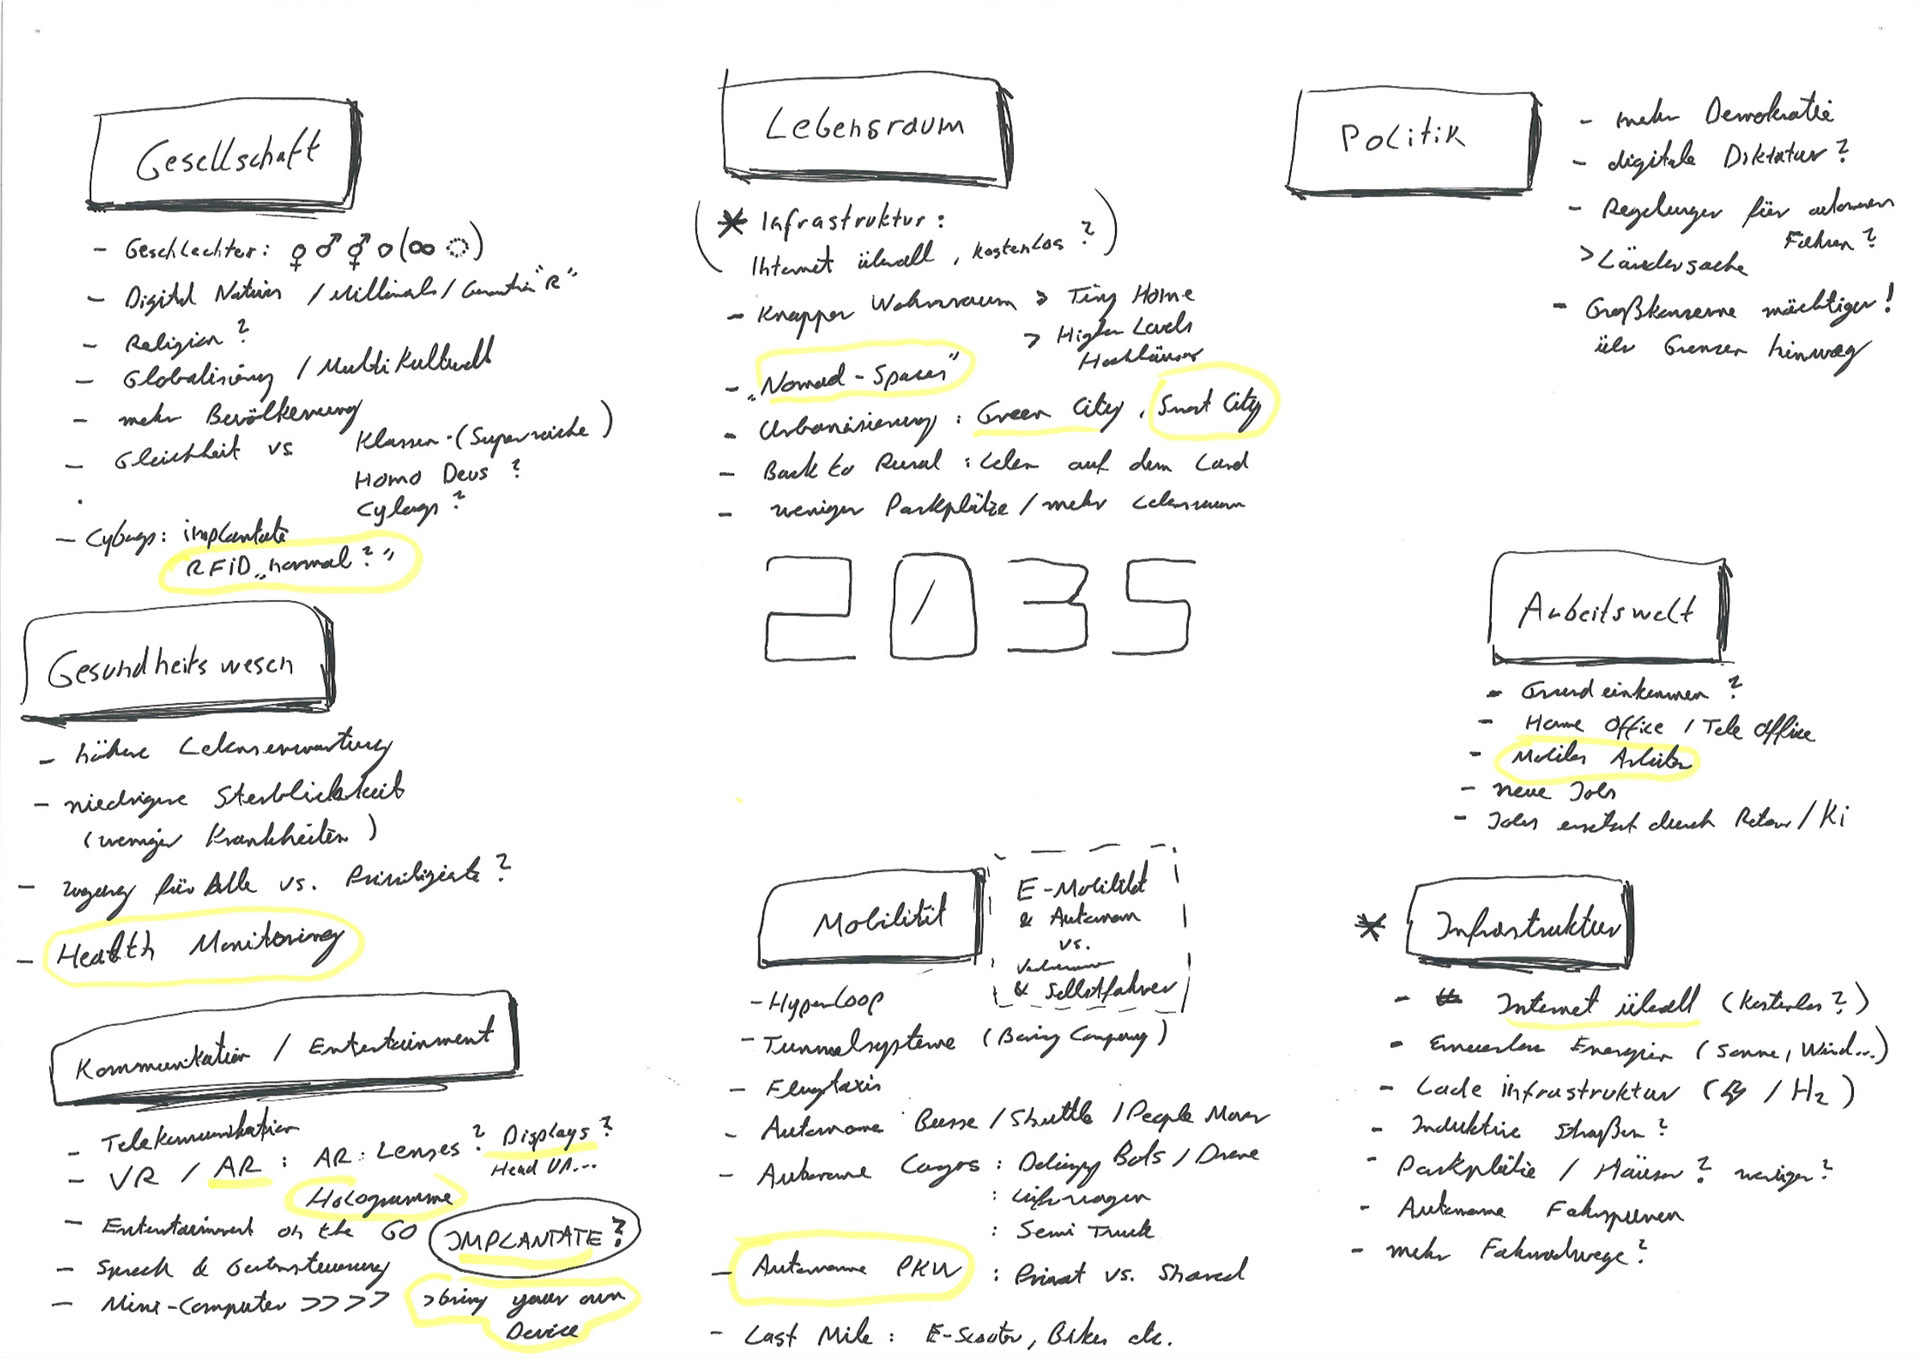 Gesellschaft
- Geschlechter: ♀ ♂ ⚥ o (∞ ◌)
- Digital Natives / Millinals / Generation "R"
- Religion?
- Globalisierung / Multi Kulturell
- mehr Bevölkerung
- Gleichheit vs Klassen-(Superreiche)
Homo Deus?
Cyborgs?
- Cyborgs: implantate
RFiD „normal?"
Gesundheitswesen
- höhere Lebenserwartung
- niedrigere Sterblichkeit
(weniger Krankheiten)
- Zugang für Alle vs. Priviligierte?
- Health Monitoring
Kommunikation / Entertainment
- Telekommunikation
- VR / AR: AR: Lenses? Displays?
Head UP...
Hologramme
- Entertainment on the GO
IMPLANTATE?
- Sprach & Gestensteuerung
- Mini-Computer >>>> > bring your own
Device
Lebensraum
(* Infrastruktur:
Internet überall, kostenlos?)
- Knapper Wohnraum > Tiny Home
> Higher Levels
Hochhäuser
- „Nomad-Spaces"
- Urbanisierung: Green City, Smart City
- Back to Rural: Leben auf dem Land
- weniger Parkplätze / mehr Lebensraum
2035
Mobilität
E-Mobilität
& Autonom
vs.
& Selbstfahrer
- Hyperloop
- Tunnelsysteme (Boring Company)
- Flugtaxis
- Autonome Busse / Shuttle / People Mover
- Autonome Cargos: Delivery Bots / Drone
: Lieferwagen
: Semi Truck
- Autonome PKW: Privat vs. Shared
- Last Mile: E-Scooter, Bikes etc.
Politik
- mehr Demokratie
- digitale Diktatur?
- Regelungen für autonomes
Fahren?
> Ländersache
- Großkonzerne mächtiger!
über Grenzen hinweg
Arbeitswelt
- Grundeinkommen?
- Home Office / Tele Office
- Mobiles Arbeiten
- neue Jobs
- Jobs ersetzt durch Roboter / Ki
* Infrastruktur
- Internet überall (kostenlos?)
- Erneuerbare Energien (Sonne, Wind...)
- Ladeinfrastruktur (/ H2)
- Induktive Straßen?
- Parkplätze / Häuser? weniger?
- Autonome Fahrspuren
- mehr Fahrradwege?